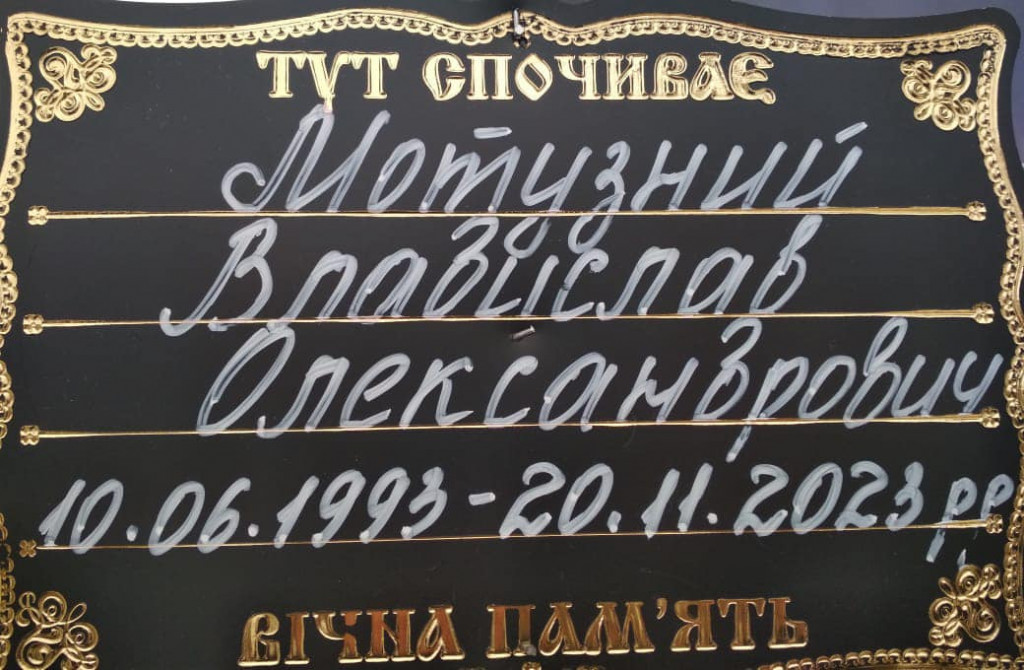 ТУТ СПОЧИВАЄ
Мотузний
Владислав
Олександрович
10.06.1993-20.11.2023 рр
ВІЧНА ПАМ'ЯТЬ